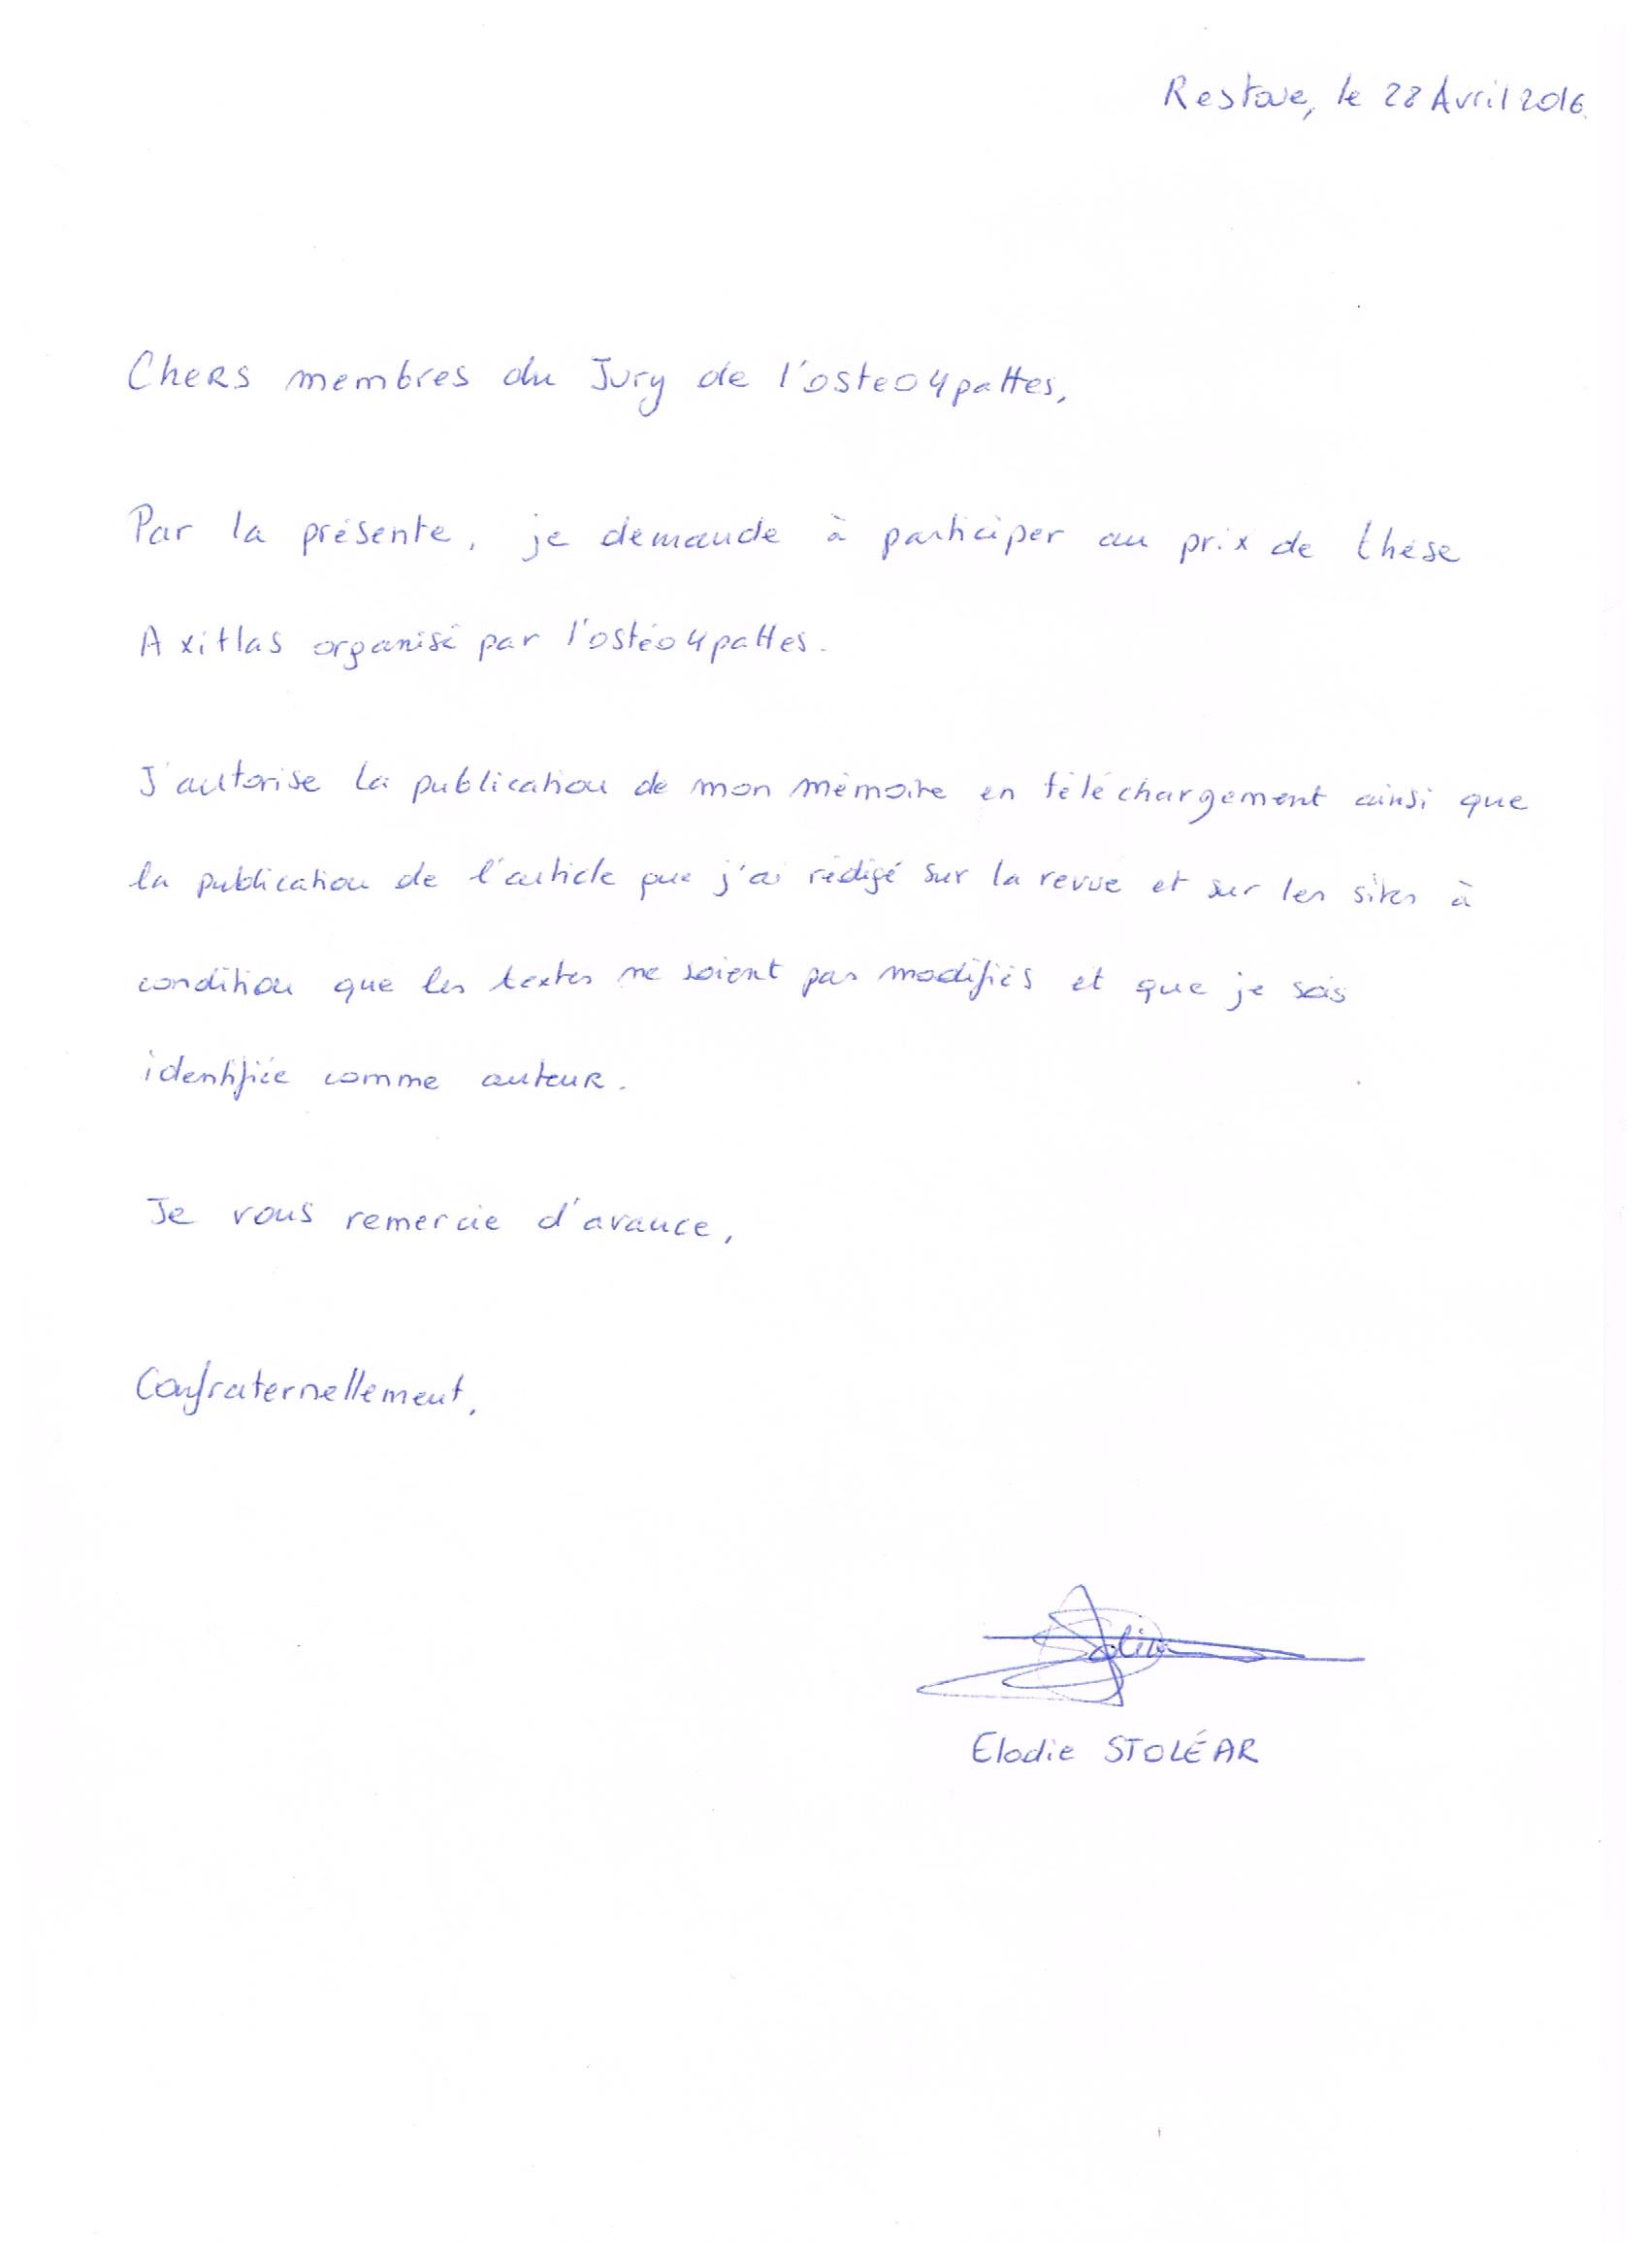 Restoue, le 28 Avril 2016.
Chers membres du Jury de l'osteo4pattes,
Par la présente, je demande à participer au prix de thèse
Axitlas organisé par l'ostéo4pattes.
J'autorise la publication de mon mémoire en téléchargement ainsi que
la publication de l'article que j'ai rédigé sur la revue et sur les sites à
condition que les textes ne soient pas modifiés et que je sois
identifiée comme auteur.
Je vous remercie d'avance,
Confraternellement,
Elodie STOLÉAR